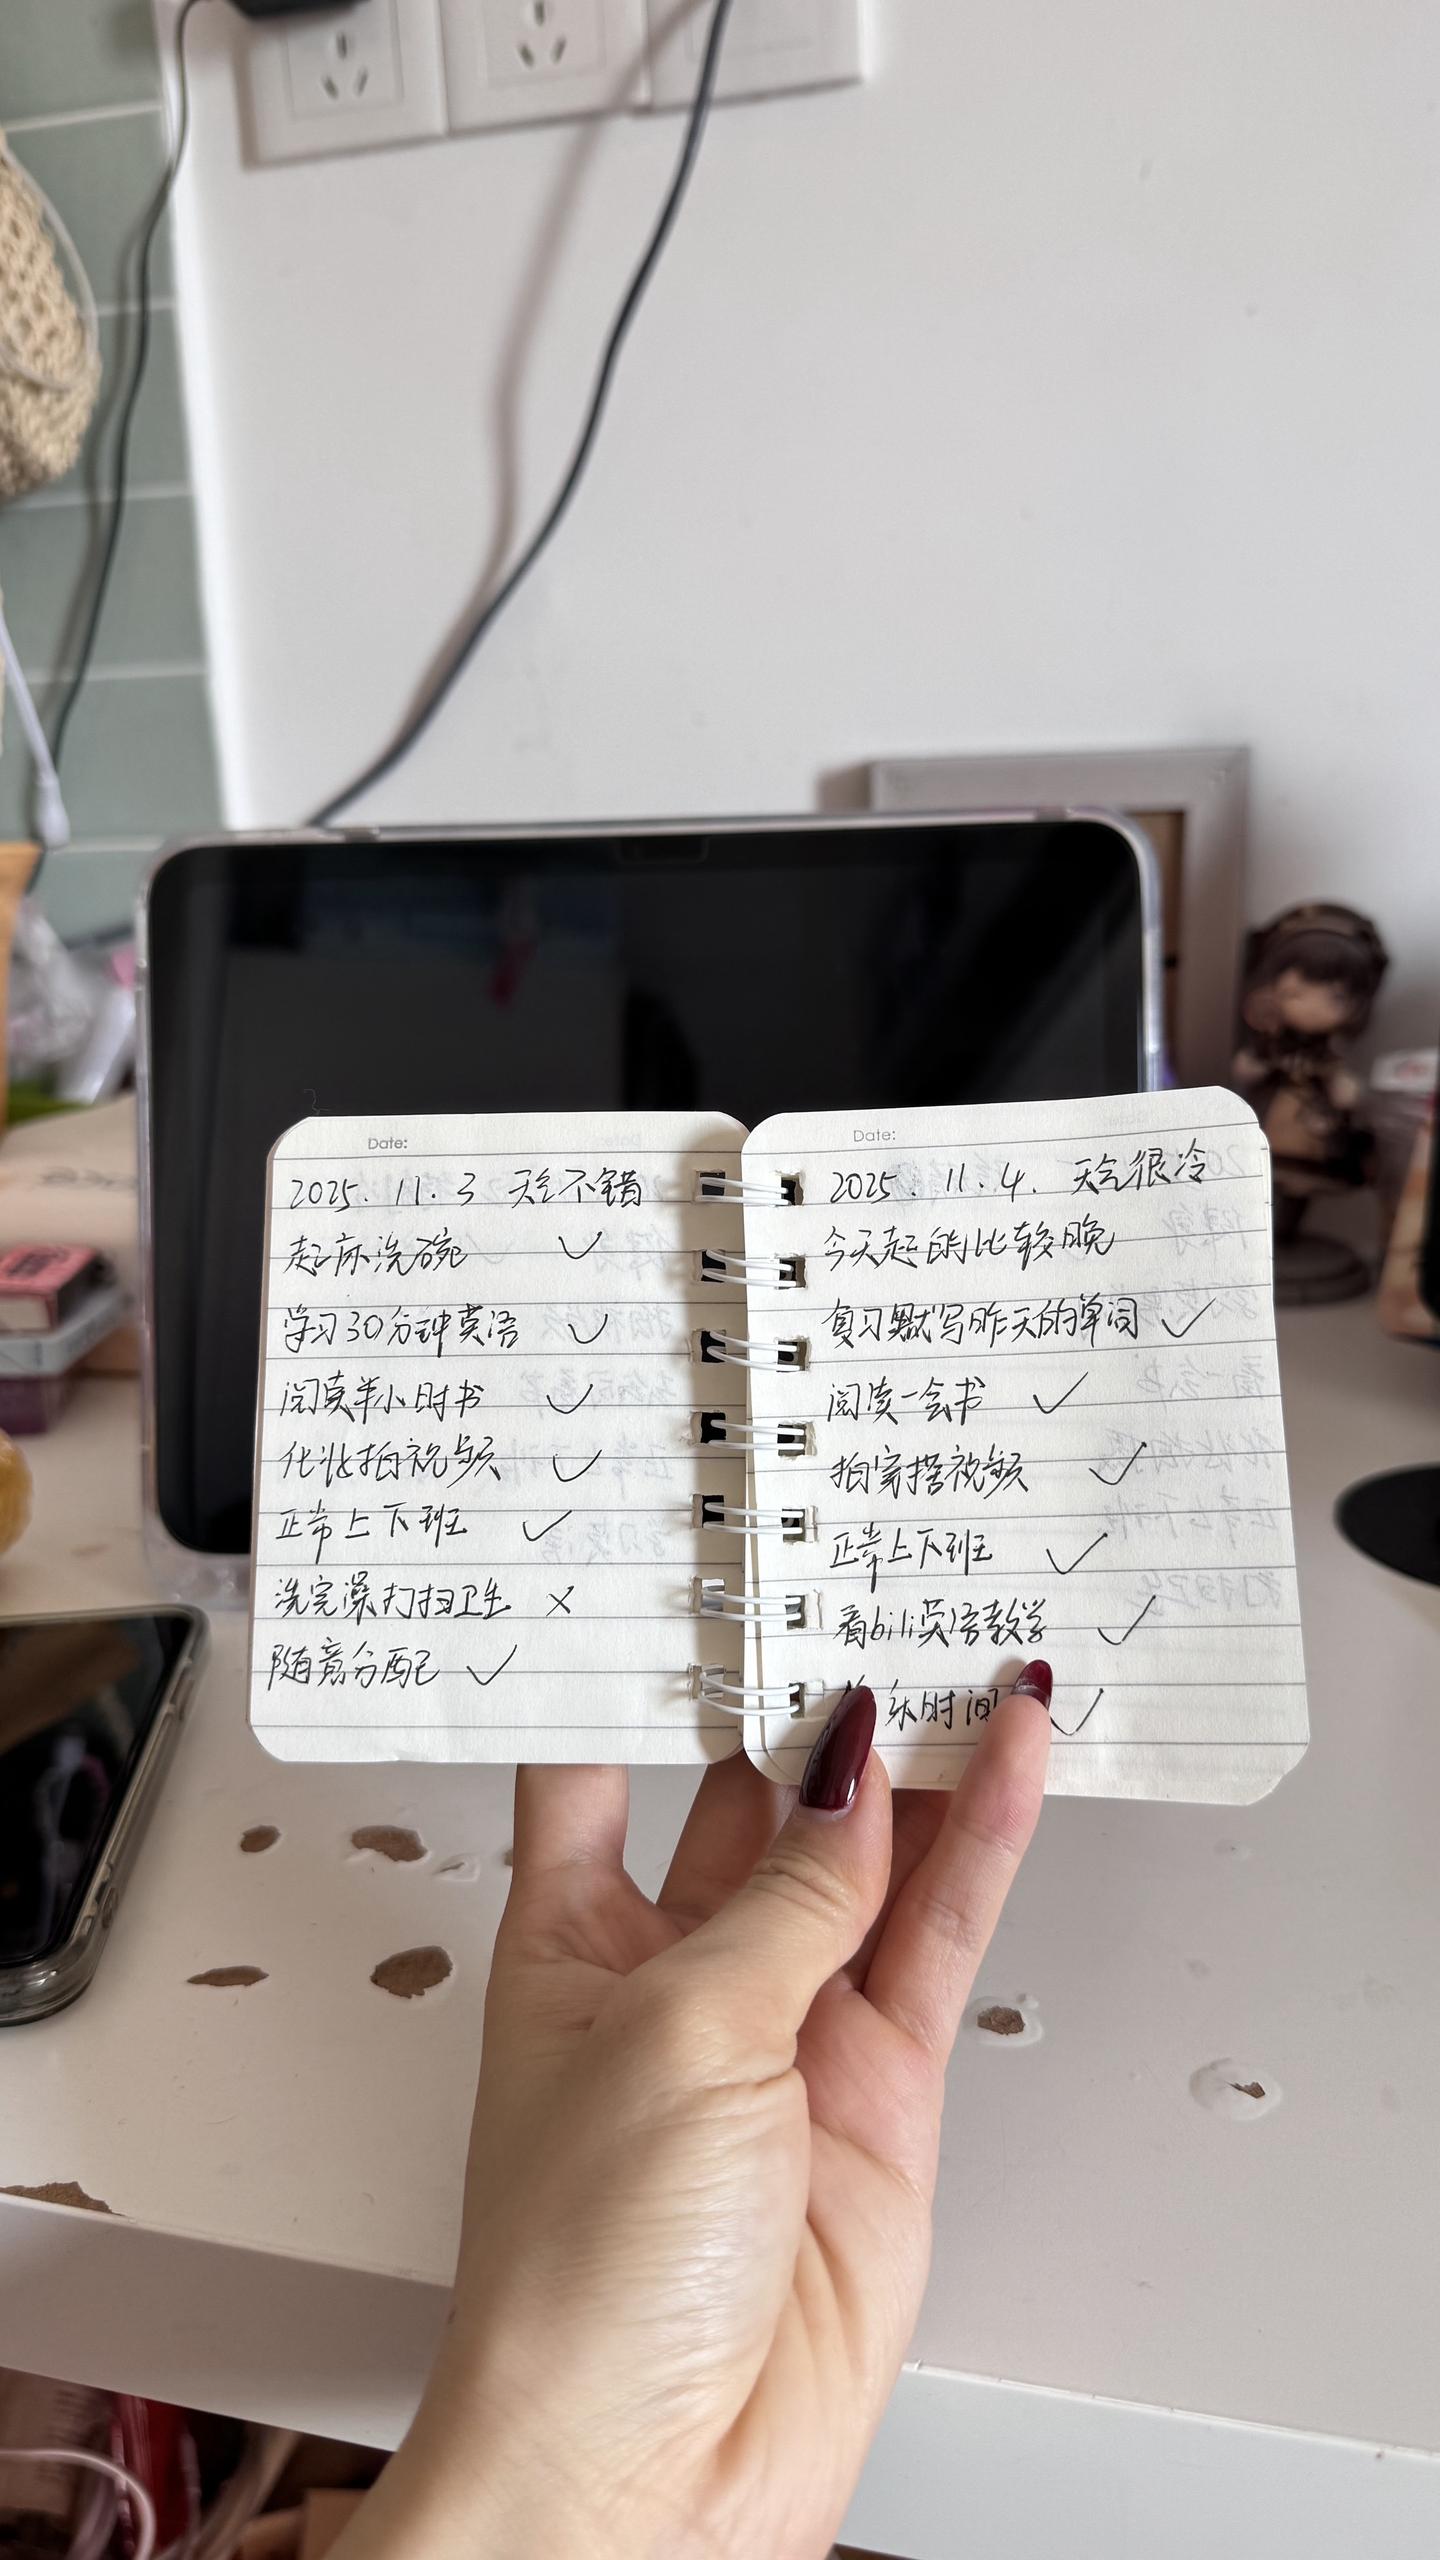 Date:
2025.11.3 天气不错
起床洗碗 ✓
学习30分钟英语 ✓
阅读半小时书 ✓
化妆拍视频 ✓
正常上下班 ✓
洗完澡打扫卫生 ×
随意分配 ✓
Date:
2025.11.4. 天气很冷
今天起的比较晚
复习默写昨天的单词 ✓
阅读一会书 ✓
拍穿搭视频 ✓
正常上下班 ✓
看bili英语教学 ✓
乐时间 ✓